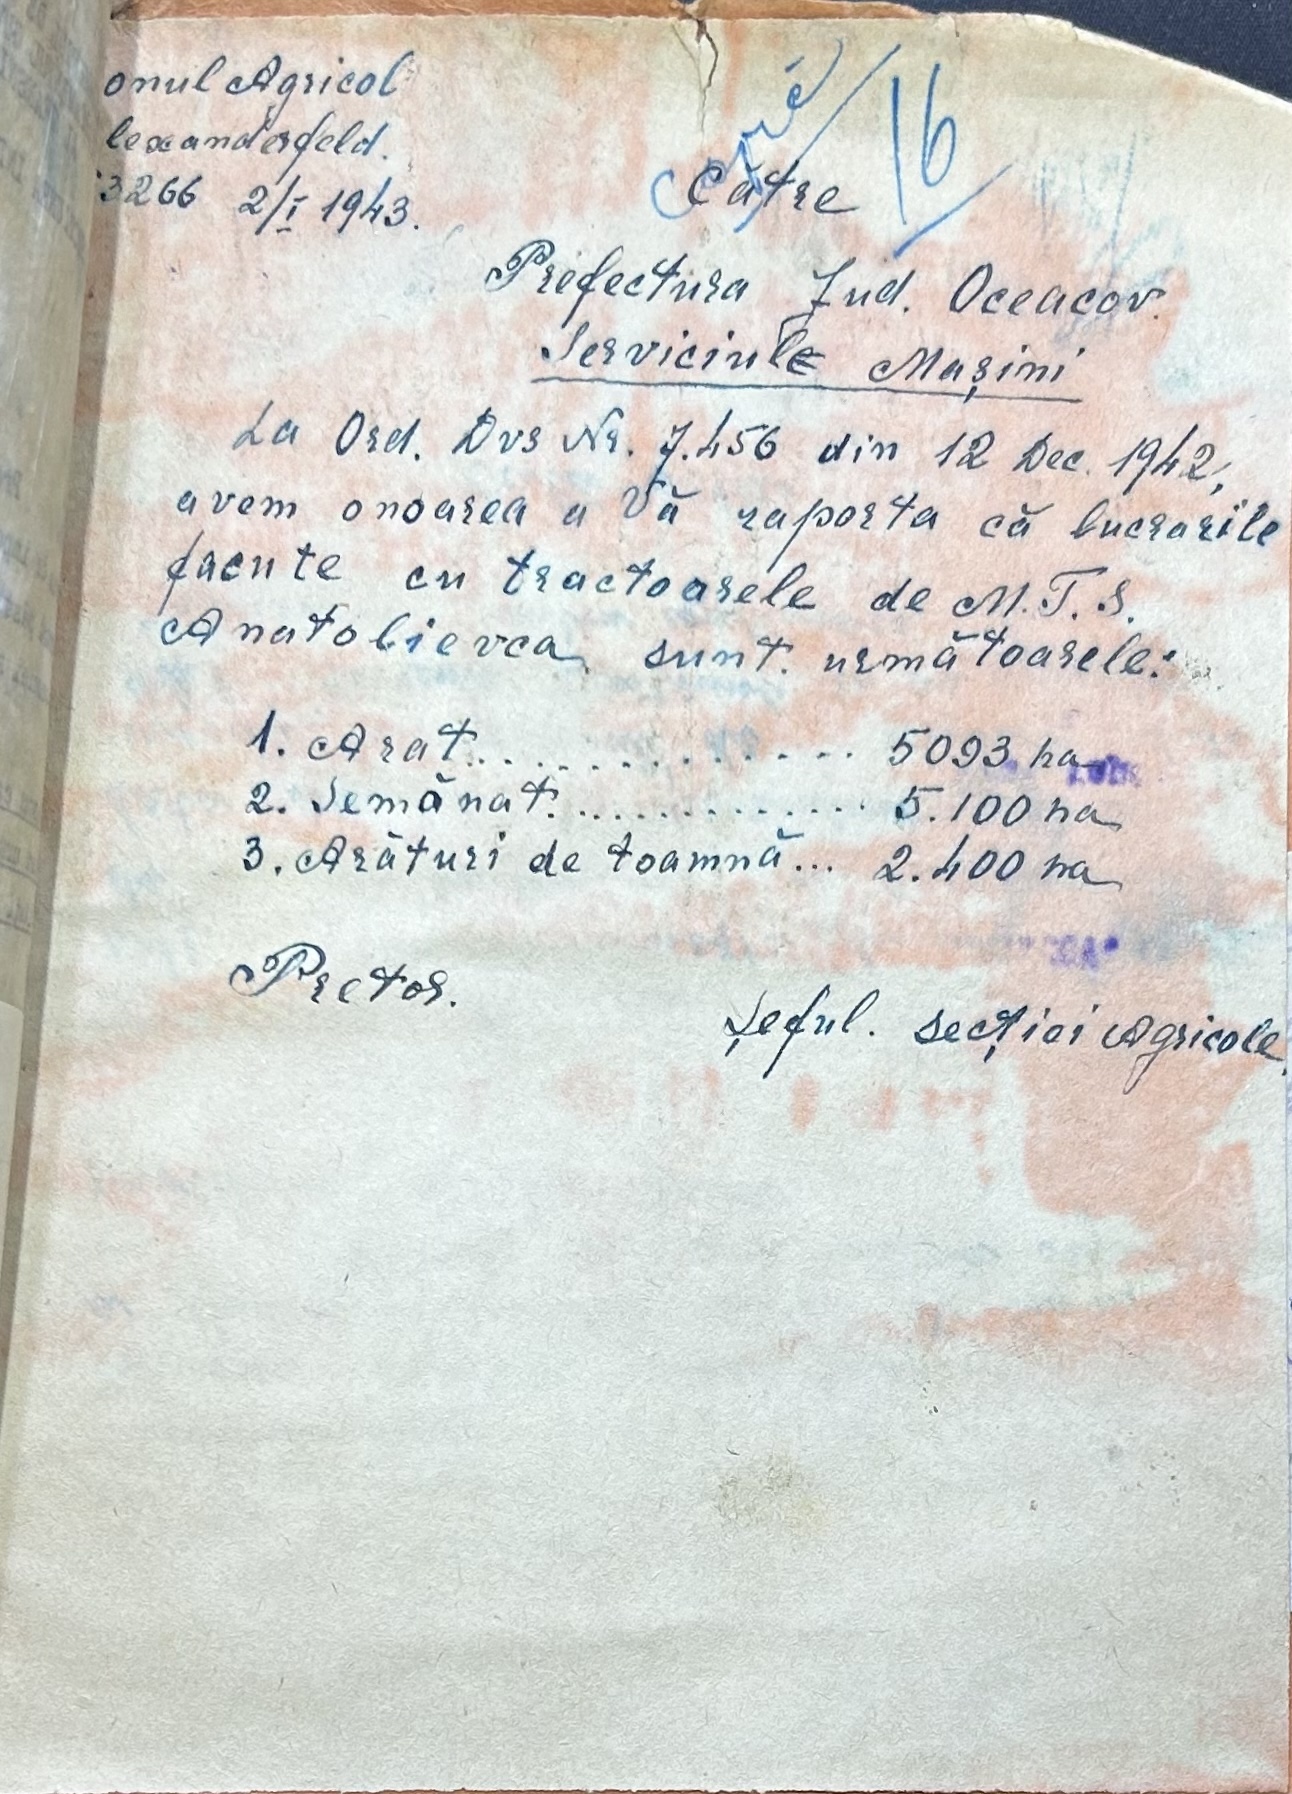 onul Agricol
lexanderfeld.
3266 2/I 1943.
16
Către
Prefectura Jud. Oceacov.
Serviciule Mașini
La Ord. Dvs Nr. 7.456 din 12 Dec. 1942,
avem onoarea a Vă raporta că lucrarile
facute cu tractoarele de M.T.S.
Anatolievca sunt. următoarele:
1. Arat.............. 5093 ha
2. Semănat............... 5.100 ha
3. Arături de toamnă... 2.400 ha
Pretor.
Șeful. secției Agricole